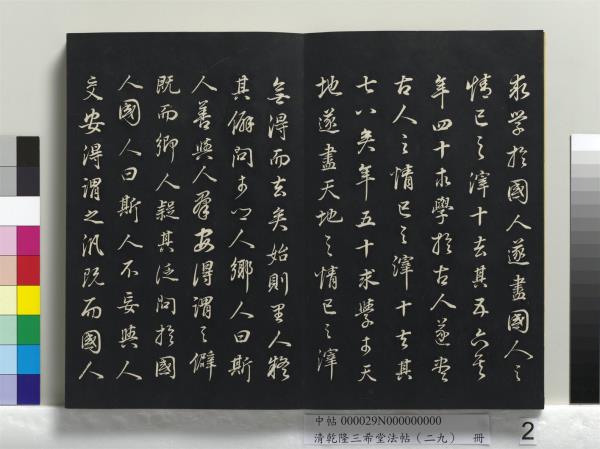 求學於國人遂盡國人之
情已之滓十去其五六矣
年四十求學於古人遂盡
古人之情已之滓十去其
七八矣年五十求學于天
地遂盡天地之情已之滓
無得而去矣始則里人疑
其僻問于鄉人鄉人曰斯
人善與人羣安得謂之僻
既而鄉人疑其泛問於國
人國人曰斯人不妄與人
交安得謂之汎既而國人
中帖 000029N000000000
清乾隆三希堂法帖(二九) 冊
2